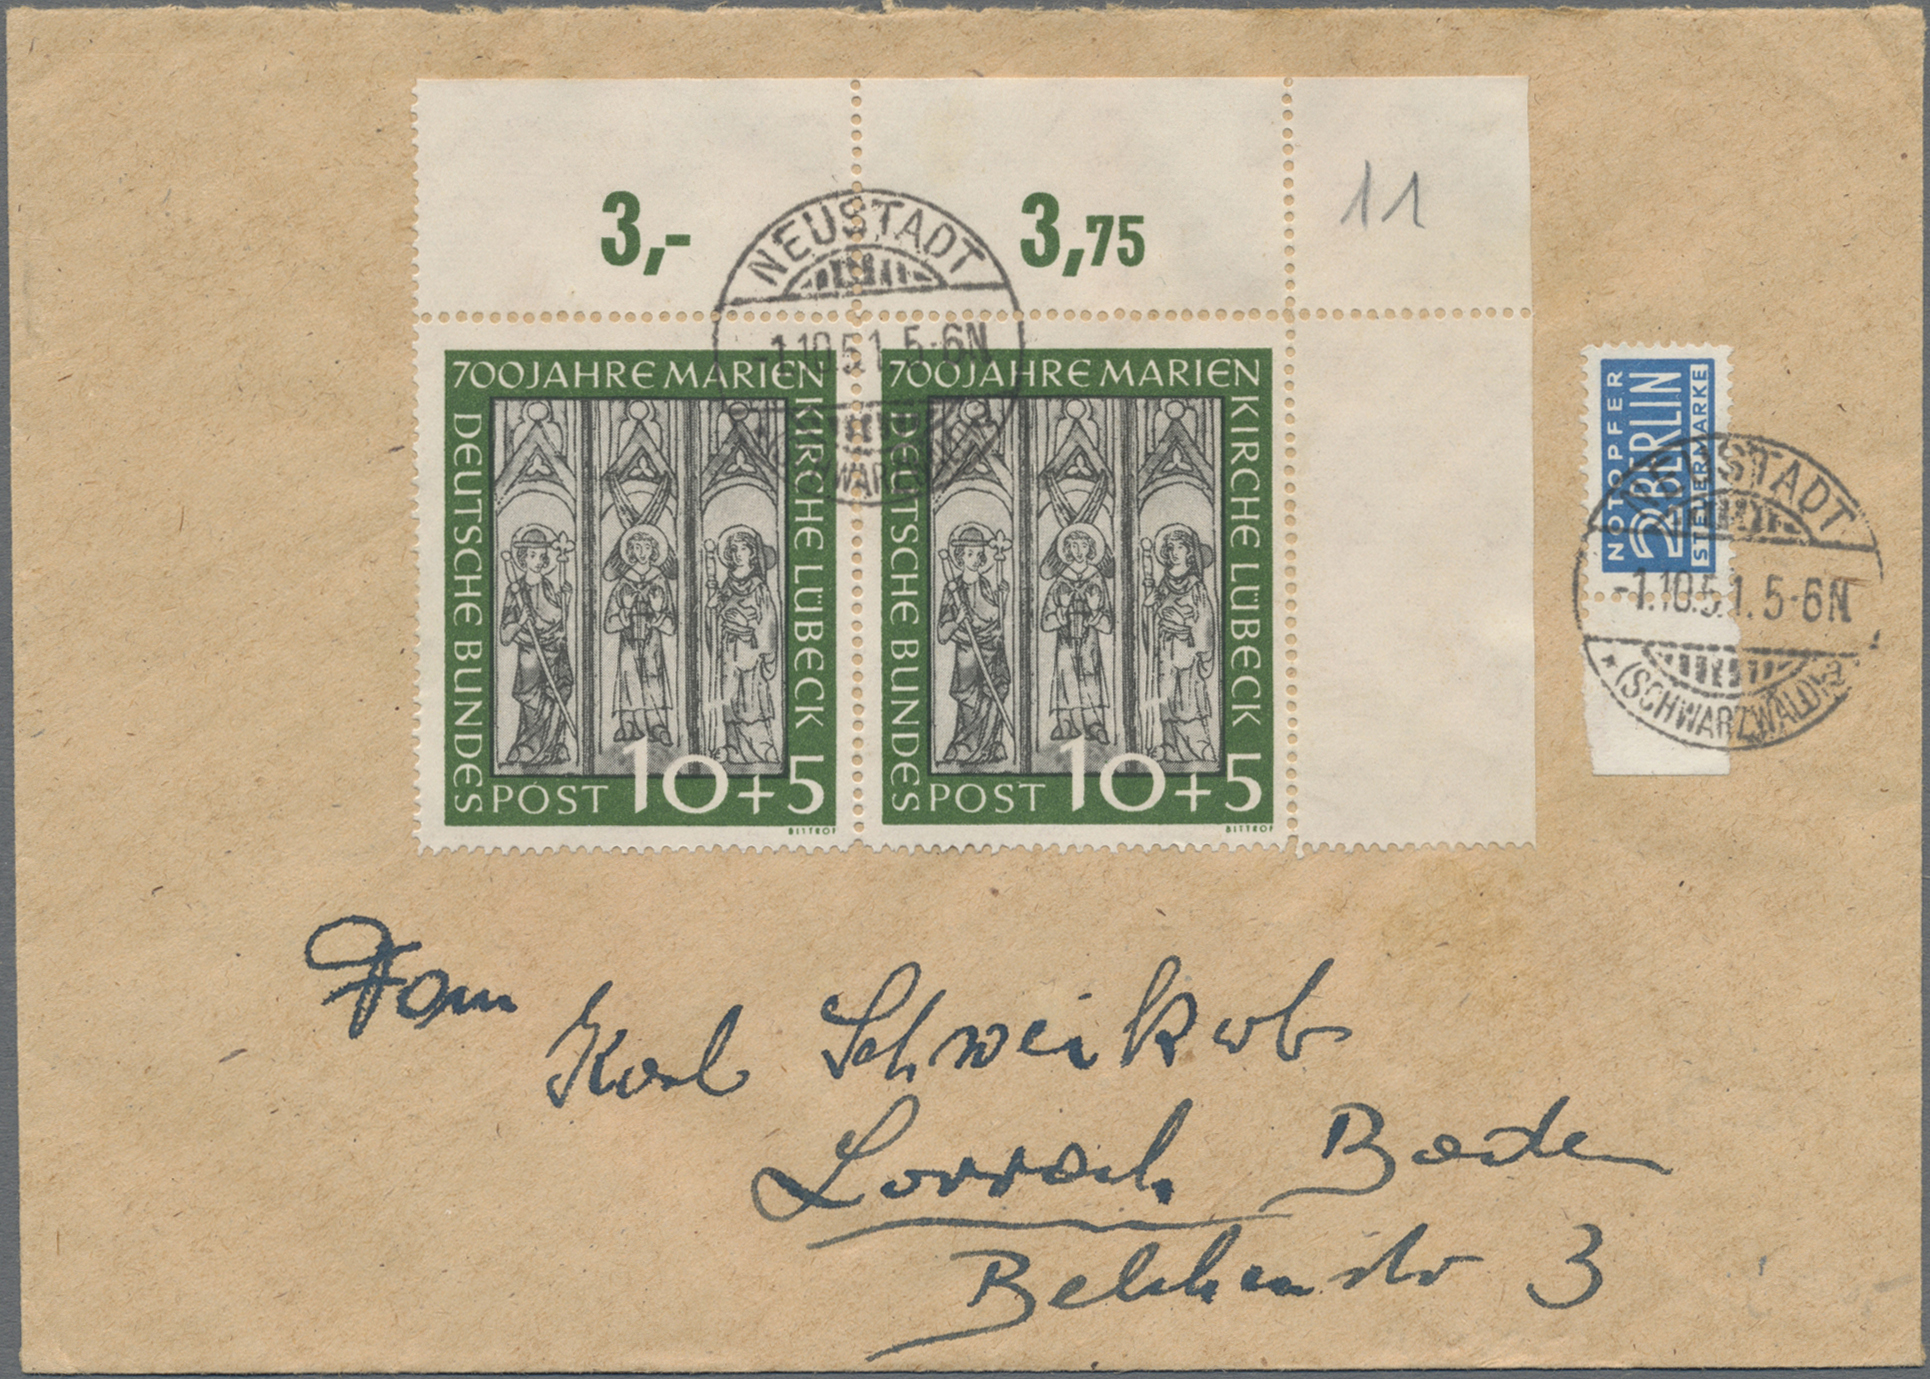 3,-
3,75
11
NEUSTADT
-1.10.51.5-6N
(SCHWARZWALD)
700 JAHRE MARIEN
KIRCHE LÜBECK
DEUTSCHE BUNDES
POST 10+5
BITTROF
700 JAHRE MARIEN
KIRCHE LÜBECK
DEUTSCHE BUNDES
POST 10+5
BITTROF
NOTOPFER
2 BERLIN
STEUERMARKE
NEUSTADT
-1.10.51.5-6N
* (SCHWARZWALD) a
Karl
Lörrach Baden
Belchenstr 3